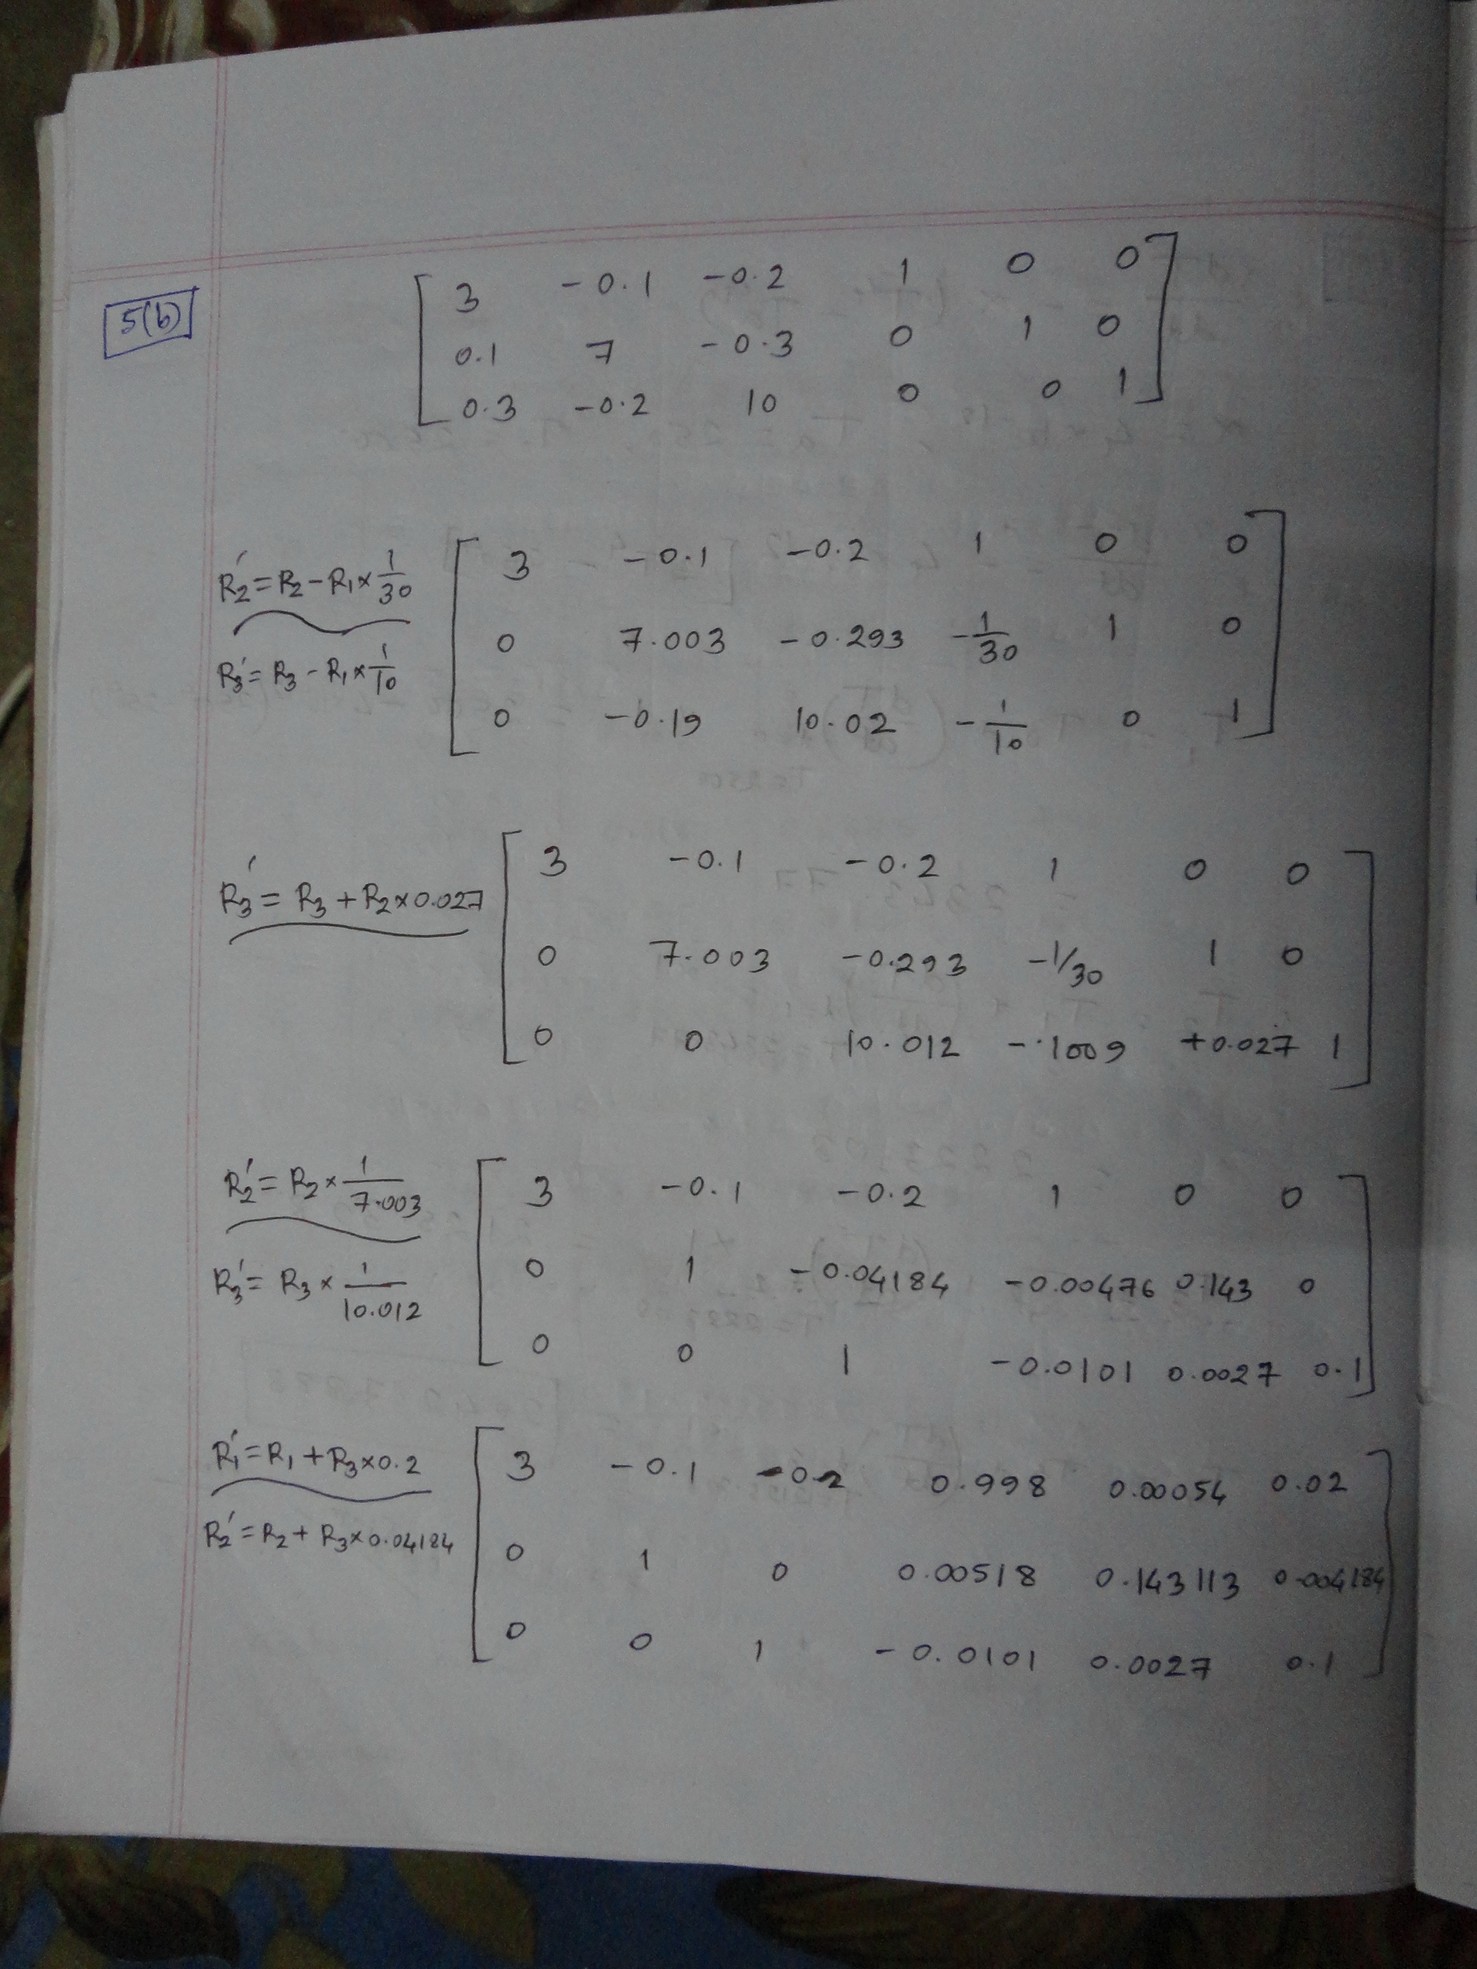 5(b)
3 -0.1 -0.2 1 0 0
0.1 7 -0.3 0 1 0
0.3 -0.2 10 0 0 1
R₂′ = R₂ - R₁ × 1/30
R₃′ = R₃ - R₁ × 1/10
3 -0.1 -0.2 1 0 0
0 7.003 -0.293 -1/30 1 0
0 -0.19 10.02 -1/10 0 1
R₃′ = R₃ + R₂ × 0.027
3 -0.1 -0.2 1 0 0
0 7.003 -0.293 -1/30 1 0
0 0 10.012 -.1009 +0.027 1
R₂′ = R₂ × 1/7.003
R₃′ = R₃ × 1/10.012
3 -0.1 -0.2 1 0 0
0 1 -0.04184 -0.00476 0.143 0
0 0 1 -0.0101 0.0027 0.1
R₁′ = R₁ + R₃ × 0.2
R₂′ = R₂ + R₃ × 0.04184
3 -0.1 -0.2 0.998 0.00054 0.02
0 1 0 0.00518 0.143113 0.004184
0 0 1 -0.0101 0.0027 0.1